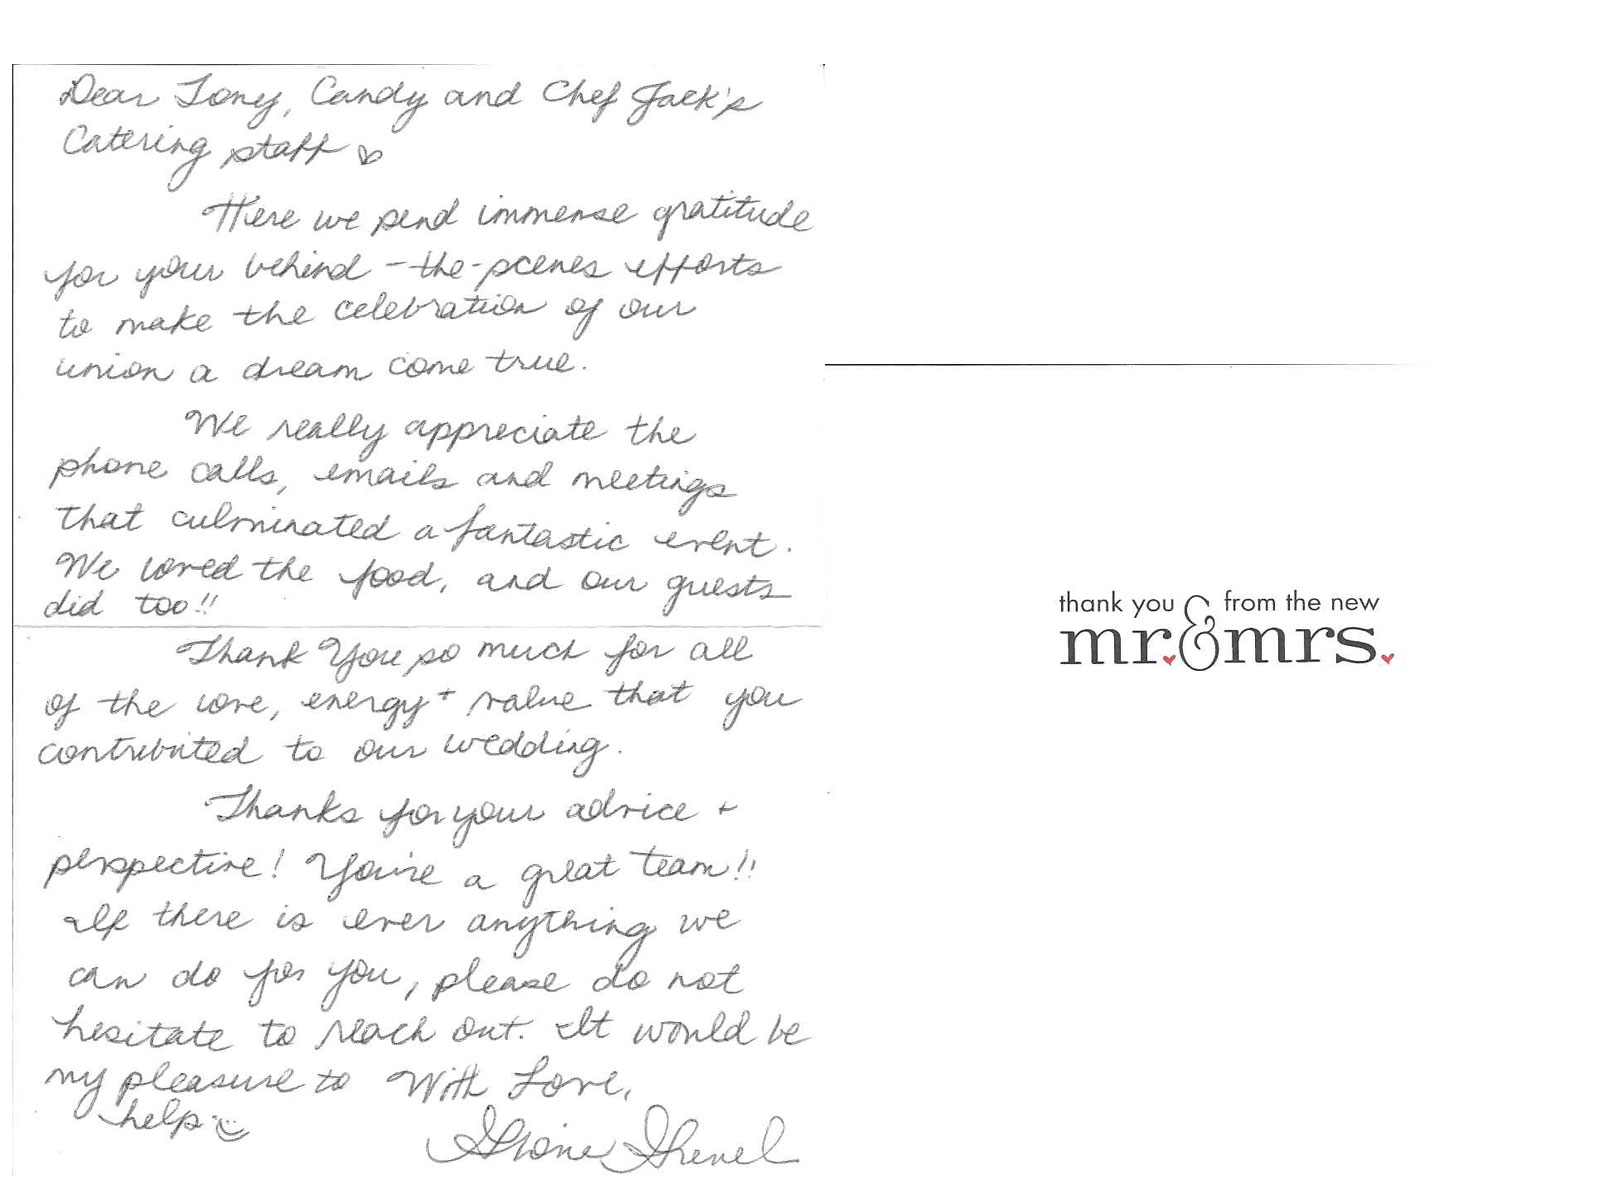 Dear Tony, Candy and Chef Jack's
Catering staff ♡
Here we send immense gratitude
for your behind-the-scenes efforts
to make the celebration of our
union a dream come true.
We really appreciate the
phone calls, emails and meetings
that culminated a fantastic event.
We loved the food, and our guests
did too!!
Thank You so much for all
of the love, energy + value that you
contributed to our wedding.
Thanks for your advice +
perspective! You're a great team!!
If there is ever anything we
can do for you, please do not
hesitate to reach out. It would be
my pleasure to
help
With Love,
thank you & from the new
mr. & mrs.